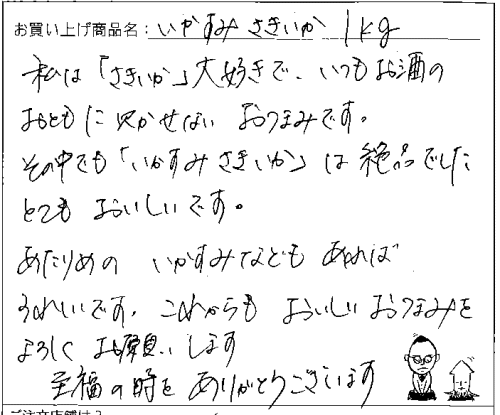 お買い上げ商品名：いかすみ さきいか 1kg
私は「さきいか」大好きで、いつもお酒の
おともに欠かせない おつまみです。
その中でも「いかすみ さきいか」は絶品でした
とても おいしいです。
あたりめの いかすみなども あれば
うれしいです。これからも おいしい おつまみを
よろしく お願いします
至福の時を ありがとうございます
ご注文店舗は？